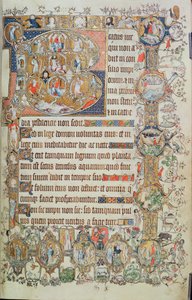 eatus uir
qui non a
biit in con
silio impi
orum et in
dra pestilencie non sedit.
Sed in lege domini uoluntas eius et in
lege eius meditabitur die ac nocte.
Et erit tamquam lignum quod planta
tum est secus decursus aquarum quod fruc
tum suum dabit in tempore suo.
Et folium eius non defluet et omnia q
cumque faciet prosperabuntur.
Non sic impii non sic sed tamquam pul
uis quem proicit uentus a facie terre.